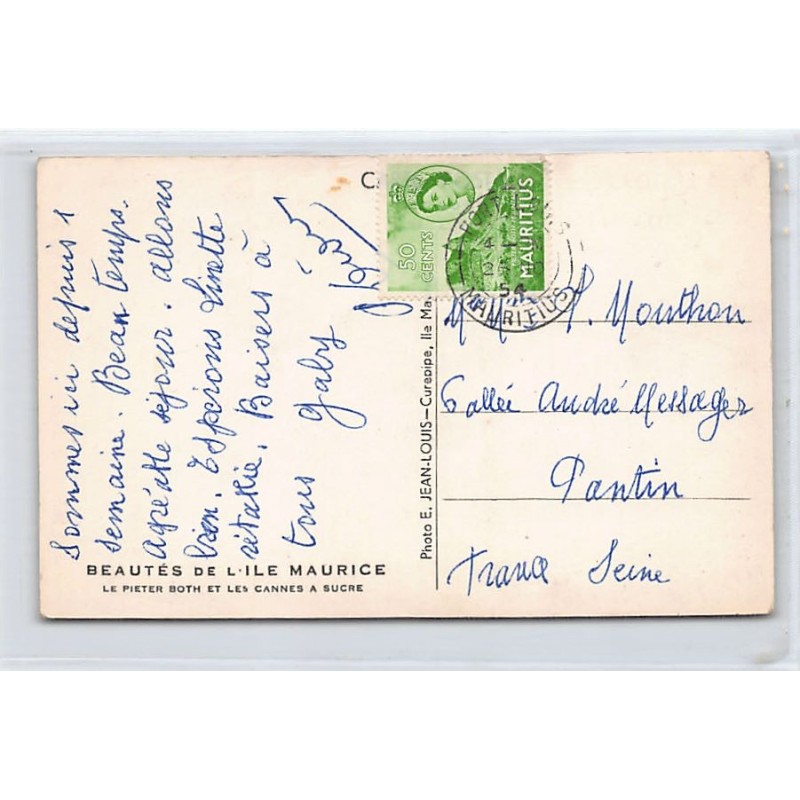 Sommes ici depuis 1
semaine. Beau temps.
Agréable séjour. Allons
bien. Espérons Linette
rétablie. Baisers à
tous Gaby
BEAUTÉS DE L'ILE MAURICE
LE PIETER BOTH ET LES CANNES A SUCRE
Photo E. JEAN-LOUIS—Curepipe, Ile Ma
C
50
CENTS
MAURITIUS
54
MAURITIUS
Monthon
6 allée André Messager
Pantin
France Seine